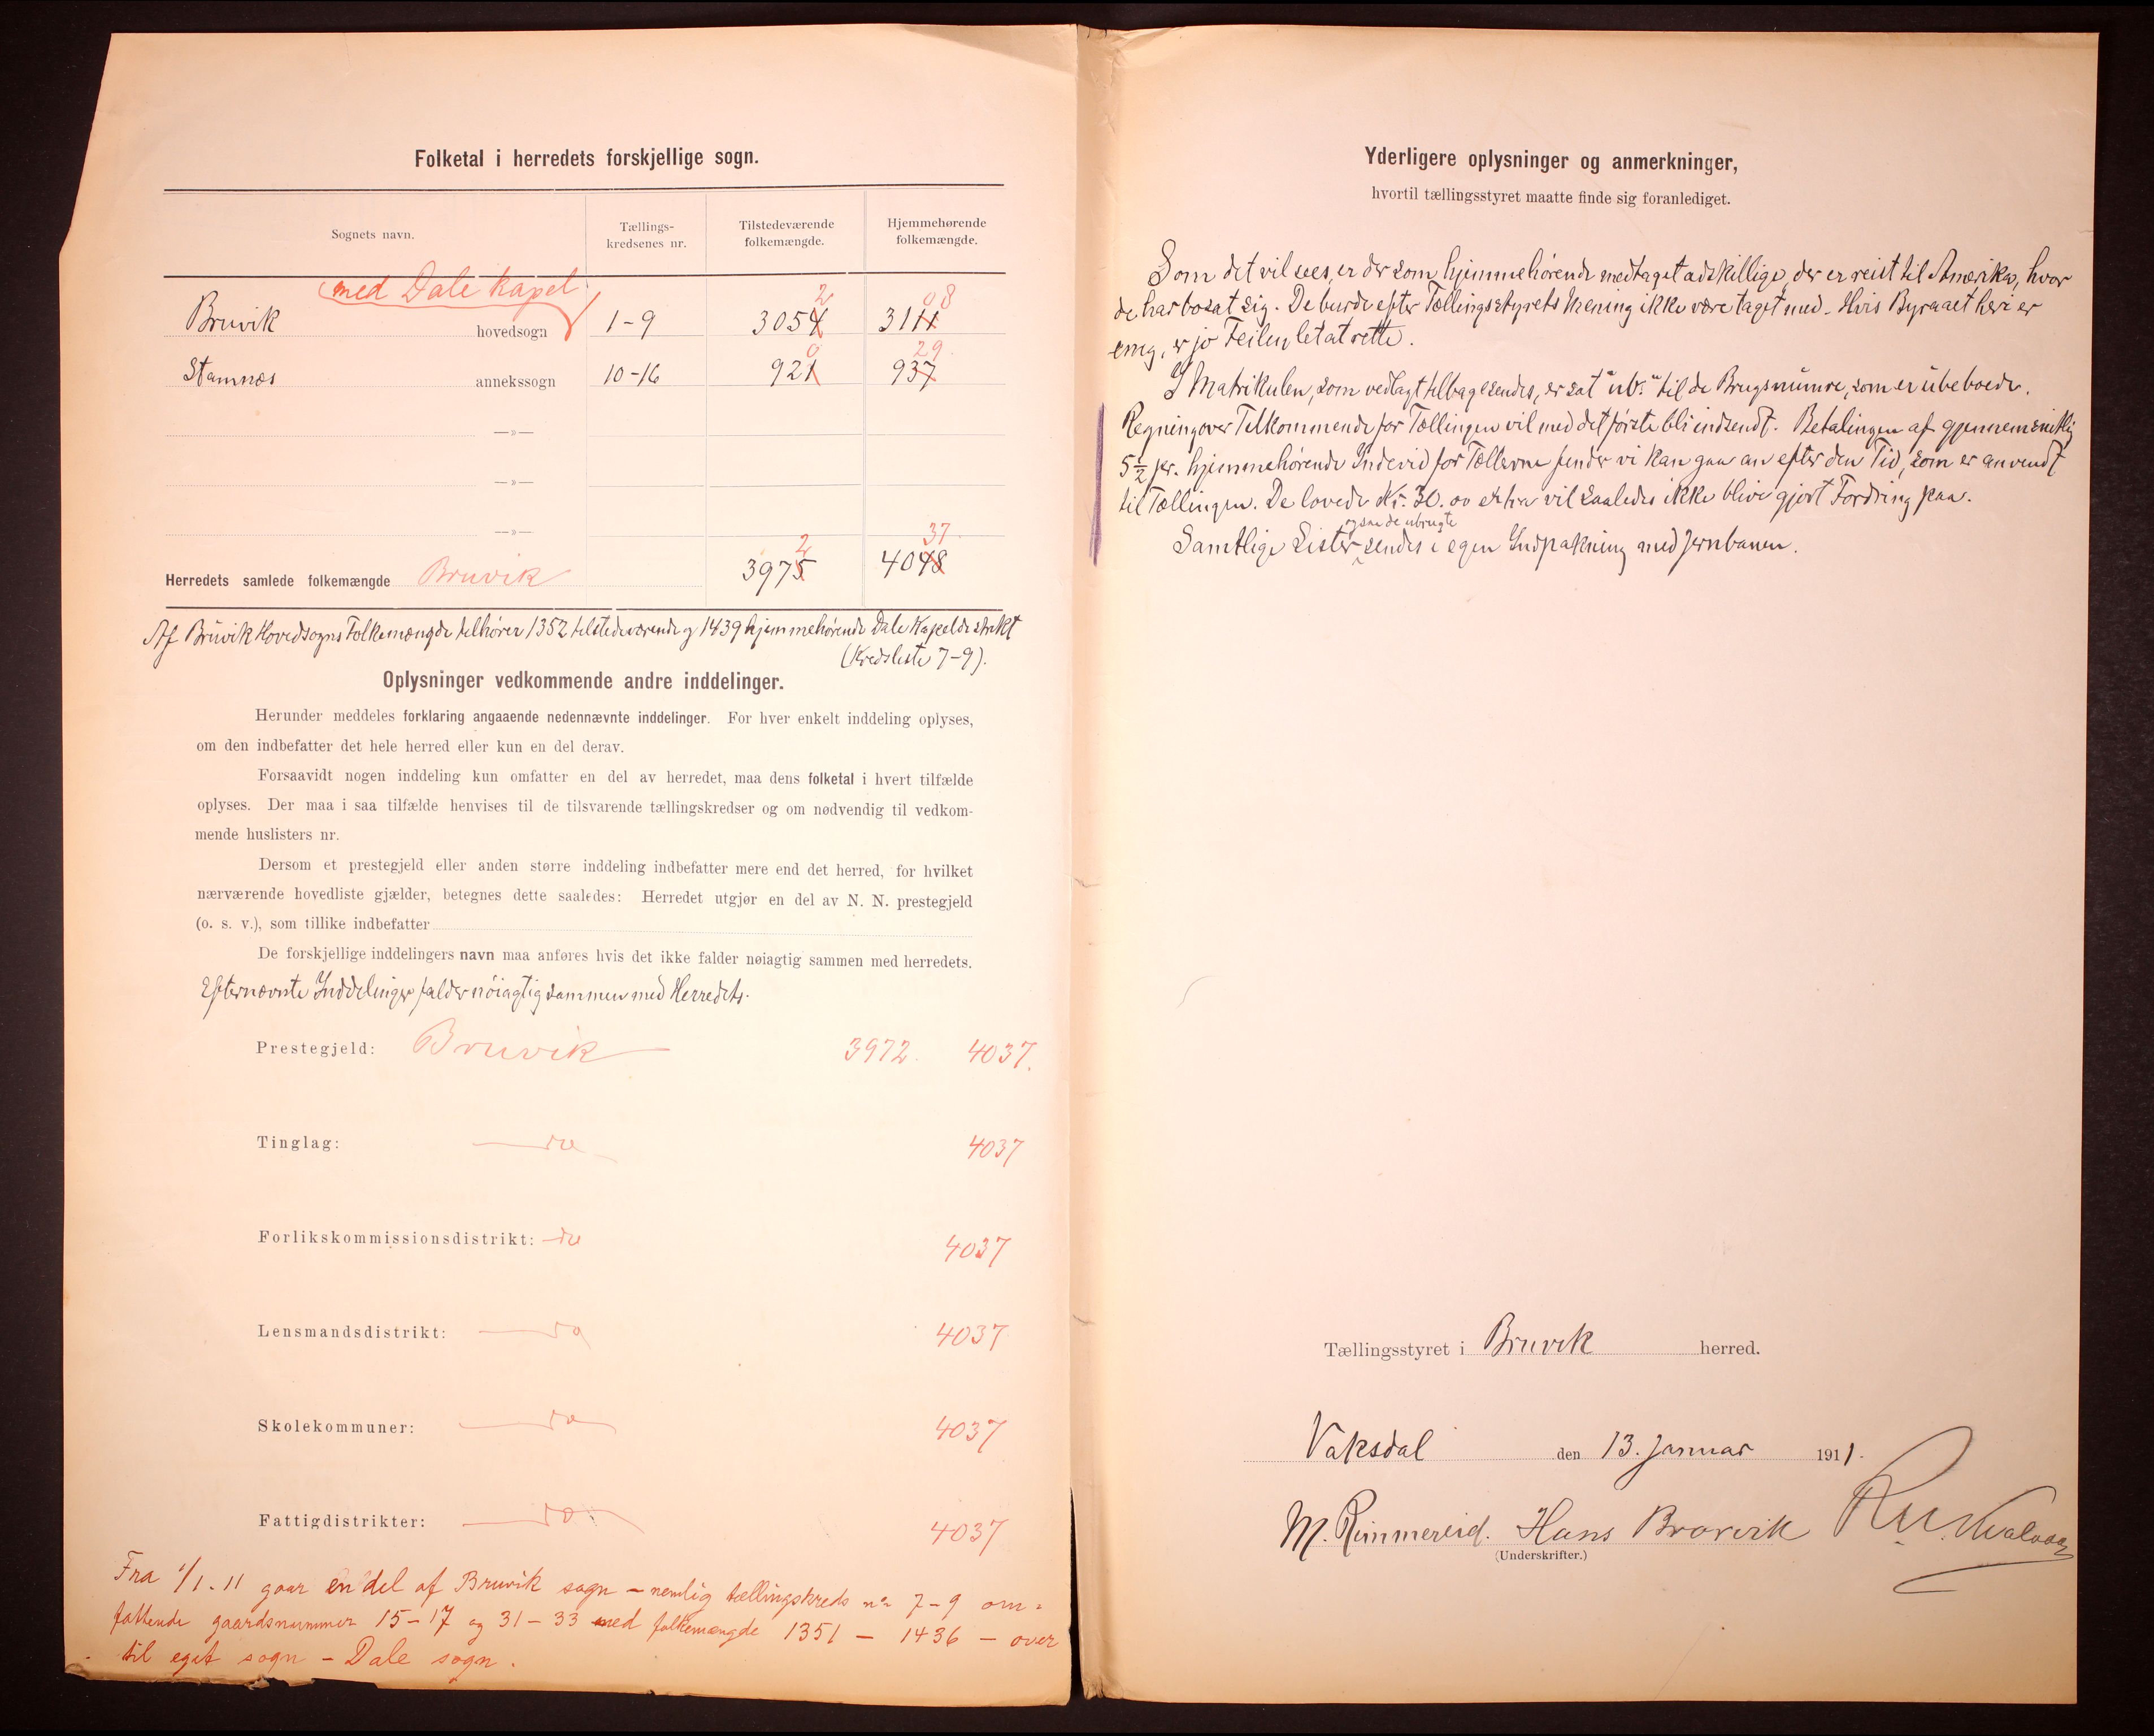 Folketal i herredets forskjellige sogn.
Sognets navn.
Tællings-
kredsenes nr.
Tilstedeværende
folkemængde.
Hjemmehørende
folkemængde.
med Dale kapel
Bruvik hovedsogn 1-9 3054 2 3111 08
Stamnes annekssogn 10-16 921 0 937 29.
—»—
—»—
—»—
Herredets samlede folkemængde Bruvik 3975 2 4048 37
Af Bruvik Hovedsogns Folkemængde tilhører 1352 tilstedeværende og 1439 hjemmehørende Dale Kapeldistrikt
(Kredsliste 7-9).
Oplysninger vedkommende andre inddelinger.
Herunder meddeles forklaring angaaende nedennævnte inddelinger. For hver enkelt inddeling oplyses,
om den indbefatter det hele herred eller kun en del derav.
Forsaavidt nogen inddeling kun omfatter en del av herredet, maa dens folketal i hvert tilfælde
oplyses. Der maa i saa tilfælde henvises til de tilsvarende tællingskredser og om nødvendig til vedkom-
mende huslisters nr.
Dersom et prestegjeld eller anden større inddeling indbefatter mere end det herred, for hvilket
nærværende hovedliste gjælder, betegnes dette saaledes: Herredet utgjør en del av N. N. prestegjeld
(o. s. v.), som tillike indbefatter
De forskjellige inddelingers navn maa anføres hvis det ikke falder nøiagtig sammen med herredets.
Efternævnte Inddelinger falder nöiagtig sammen med Herredets.
Prestegjeld: Bruvik 3972. 4037.
Tinglag: do 4037
Forlikskommissionsdistrikt: do 4037
Lensmandsdistrikt: do 4037
Skolekommuner: do 4037
Fattigdistrikter: do 4037
Fra 1/1.11 gaar en del af Bruvik sogn – nemlig tællingskreds no 7-9 om=
fattende gaardsnummer 15-17 og 31-33 med folkemængde 1351 – 1436 – over
til eget sogn – Dale sogn.
Yderligere oplysninger og anmerkninger,
hvortil tællingsstyret maatte finde sig foranlediget.
Som det vil sees, er der som hjemmehørende medtaget adskillige, der er reist til Amerika, hvor
de har bosat sig. De burde efter Tællingsstyrets Mening ikke være taget med. Hvis Byraaet heri er
enig, er jo Feilen let at rette.
I Matrikulen, som vedlagt tilbagesendes, er sat "ub." til de Brugsnumre, som er übeboede.
Regning over Tilkommende for Tællingen vil med det første bli indsendt. Betalingen af gjennemsnitlig
5½ pr. hjemmehørende Individ for Tællerne finder vi kan gaa an efter den Tid, som er anvendt
til Tællingen. De lovede Kr. 30.00 extra vil saaledes ikke blive gjort Fordring paa.
ogsaa de ubrugte
Samtlige Lister sendes i egen Indpakning med Jernbanen.
Tællingsstyret i Bruvik herred.
Vaksdal den 13. Januar 1911.
M. Rimmereid. Hans Brorvik
(Underskrifter.)